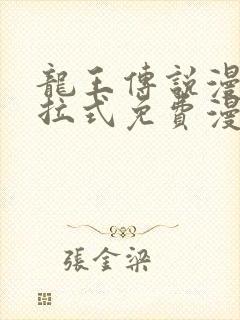 龍王傳說漫
拉式免費漫
張金梁